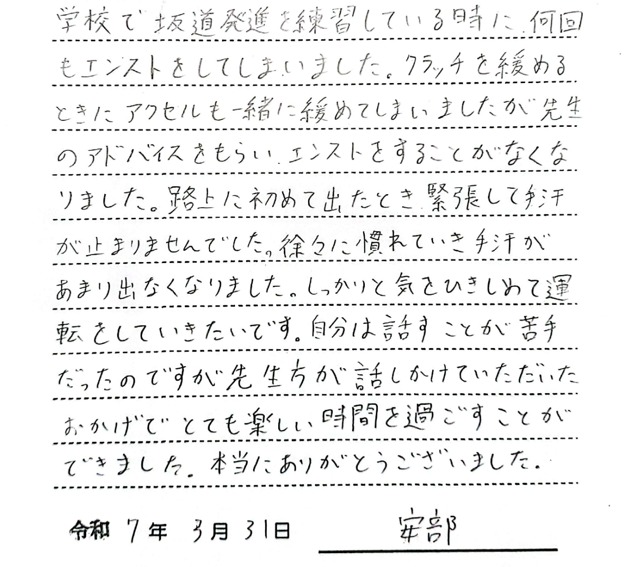 学校で坂道発進を練習している時に、何回
もエンストをしてしまいました。クラッチを緩める
ときにアクセルも一緒に緩めてしまいましたが先生
のアドバイスをもらい、エンストをすることがなくな
りました。路上に初めて出たとき緊張して手汗
が止まりませんでした。徐々に慣れていき手汗が
あまり出なくなりました。しっかりと気をひきしめて運
転をしていきたいです。自分は話すことが苦手
だったのですが先生方が話しかけていただいた
おかげでとても楽しい時間を過ごすことが
できました。本当にありがとうございました。
令和 7年 3月 31日 安部